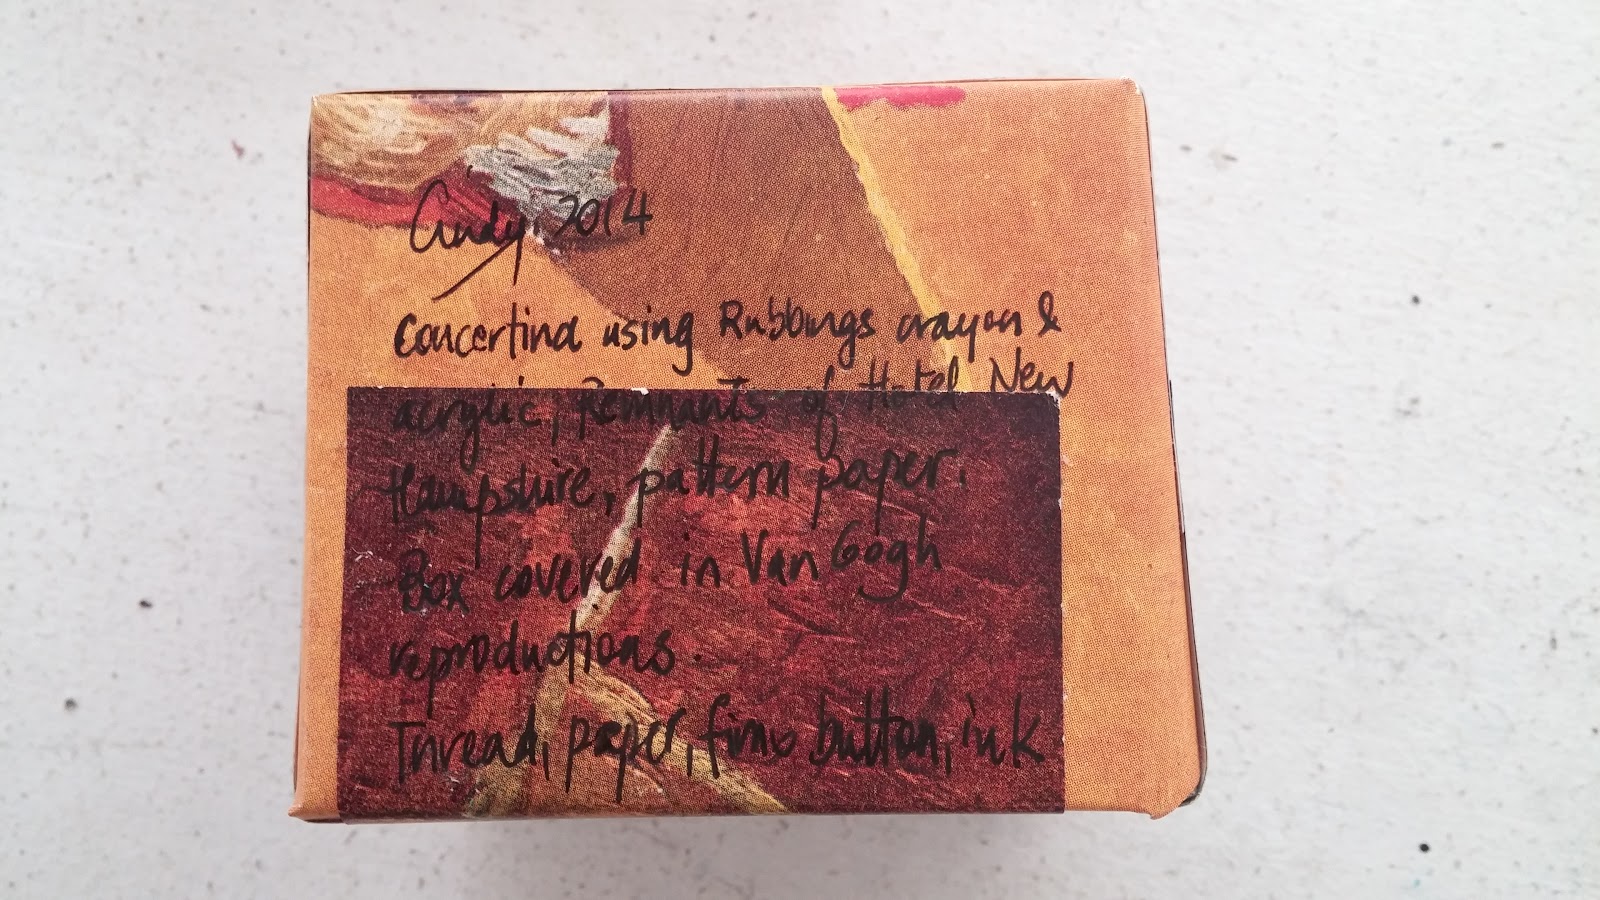 Cindy 2014
Concertina using Rubbings crayon &
acrylic, Remnants of Hotel New
Hampshire, pattern paper.
Box covered in Van Gogh
reproductions.
Thread, paper, fimo button, ink